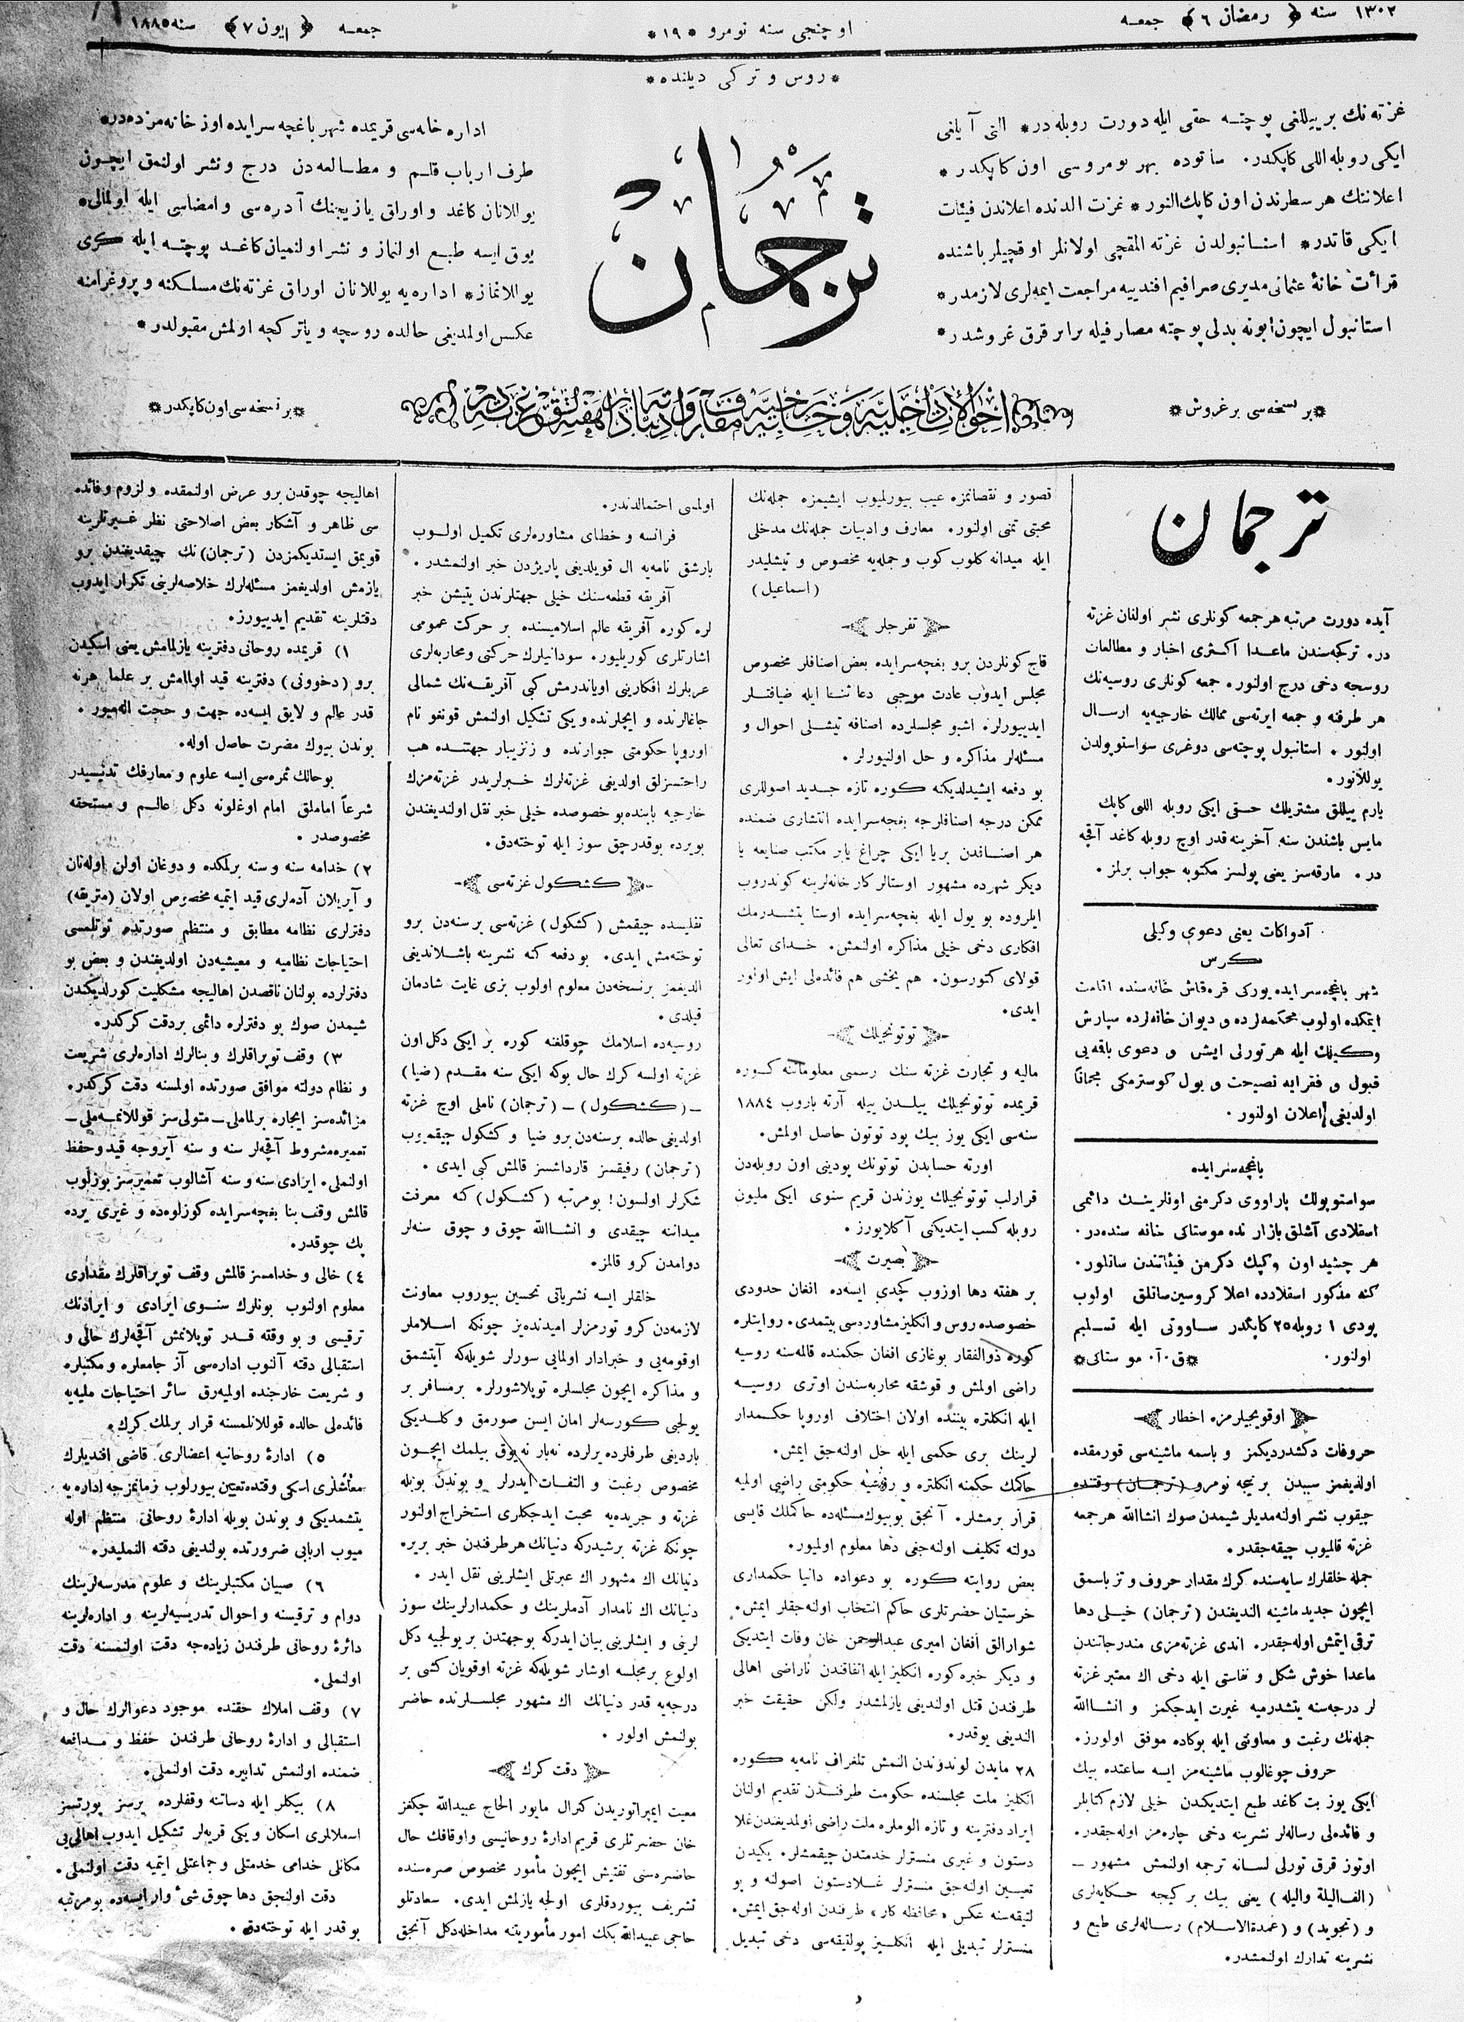 ۱۳۰۲ سنه ﴿ رمضان ۶ ﴾ جمعه
اوچنجی سنه نومرو *۱۹*
جمعه ﴿ ایون ۷ ﴾ سنه ۱۸۸۵
* روس و تركی دیلنده *
غزته‌نك بر ییللغی پوچته حقی ایله دورت روبله‌در* التی آیلغی
ایكی روبله اللی كاپكدر. ساتوده بهر نومروسی اون كاپكدر *
اعلاننك هر سطرندن اون كاپك النور* غزت الدنده اعلاندن فیئات
ایكی قاتدر* استانبولدن غزته المقچی اولانلر اوقچیلر باشنده
قرائت خانهٔ عثمانی مدیری صرافیم افندییه مراجعت ایمه‌لری لازمدر*
استانبول ایچون ابونه بدلی پوچته مصارفیله برابر قرق غروشدر*
ترجمان
اداره خانه‌سی قریمده شهر باغچه سرایده اوز خانه‌مزده‌در*
طرف ارباب قلم و مطالعه‌دن درج و نشر اولنمق ایچون
یوللانان كاغد و اوراق یازیجینك آدره‌سی و امضاسی ایله اولمالی*
یوق ایسه طبع اولنماز و نشر اولنمیان كاغد پوچته ایله كری
یوللانماز* اداره‌یه یوللانان اوراق غزته‌نك مسلكنه و پروغرامنه
عكس اولمدیغی حالده روسچه و یا تركچه اولمش مقبولدر*
*بر نسخه‌سی بر غروش*
*بر نسخه‌سی اون كاپكدر*
ترجمان
آیده دورت مرتبه هر جمعه كونلری نشر اولنان غزته
در. تركجه‌سندن ماعدا اكثری اخبار و مطالعات
روسجه دخی درج اولنور. جمعه كونلری روسیه‌نك
هر طرفنه و جمعه ایرته‌سی ممالك خارجیه‌یه ارسال
اولنور. استانبول پوچته‌سی دوغری سواستوپولدن
یوللانور.
یارم ییللق مشتریلك حقی ایكی روبله اللی كاپك
مایس باشندن سنه آخرینه قدر اوچ روبله كاغد آقچه
در. مارقه‌سز یعنی پولسز مكتوبه جواب برلمز.
آدواكات یعنی دعوی وكیلی
شهر باغچه‌سرایده یوركی قره‌قاش خانه‌سنده اقامت
ایتمكده اولوب محكمه‌لرده و دیوان خانه‌لرده سپارش
وكیلك ایله هر تورلی ایش و دعوی باقه‌یی
قبول و فقرایه نصیحت و یول كوسترمكی مجمانا
اولدیغی اعلان اولنور.
باغچه‌سرایده
سواستوپولك پاراووی دكرمنی اونلرینك دائمی
اسقلادی آشلق بازارنده موستاكی خانه سنده‌در.
هر چشید اون و كپك دكرمن فیئاتندن ساتلور.
كنه مذكور اسقلادده اعلا كروسین ساتلق اولوب
پودی ۱ روبله ۲۵ كاپكدر ساووتی ایله تسلیم
اولنور. *ق.آ. موستاكی*
اوقویجیلرمزه اخطار
حروفات دكشدردیكمز و باسمه ماشینه‌سی قورمقده
اولدیغمز سببدن بر نیجه نومرو (ترجمان) وقتنده
چیقوب نشر اولنه‌مدیلر شیمدن صوك انشاالله هر جمعه
غزته قالمیوب چیقه‌جقدر.
جمله خلقلرك سایه‌سنده كرك مقدار حروف و تز باسمق
ایچون جدید ماشینه الندیغندن (ترجمان) خیلی دها
ترقی ایتمش اوله‌جقدر. اندی غزته‌مزی مندرجاتندن
ماعدا خوش شكل و نفاستی ایله دخی اك معتبر غزته
لر درجه‌سنه یتشدرمیه غیرت ایدجكمز و انشاالله
جمله‌نك رغبت و معاونتی ایله بوكاده موفق اولورز.
حروف چوغالوب ماشینه‌مز ایسه ساعتده بیك
ایكی یوز بت كاغد طبع ایتدیكدن خیلی لازم كتابلر
و فائده‌لی رساله‌لر نشرینه دخی چاره‌مز اوله‌جقدر.
اوتوز قرق تورلی لسانه ترجمه اولنمش مشهور –
(الف‌الیلة والیله) یعنی بیك بر كیجه حكایه‌لری
و (تجوید) و (عمدةالاسلام) رساله‌لری طبع و
نشرینه تدارك اولنمشدر.
قصور و نقصانمزه عیب بیورلمیوب ایشیمزه جمله‌نك
محبتی تمنی اولنور. معارف و ادبیات جمله‌نك مدخلی
ایله میدانه كلوب كوب و جمله‌یه مخصوص و تیشلیدر
(اسماعیل)
تفرجلر
قاچ كونلردن برو بغچه‌سرایده بعض اصنافلر مخصوص
مجلس ایدوب عادت موجبی دعا ثنا ایله ضیافتلر
ایدییورلر. اشبو مجلسلرده اصنافه تیشلی احوال و
مسئله‌لر مذاكره و حل اولنیورلر.
بو دفعه ایشیدلدیكنه كوره تازه جدید اصوللری
ممكن درجه اصنافلرجه بغچه‌سرایده انتشاری ضمنده
هر اصنافدن بر یا ایكی چراغ یا بر مكتب صنایعه یا
دیكر شهرده مشهور اوستالر كارخانه‌لرینه كوندروب
ایلروده بو یول ایله بغچه‌سرایده اوستا یتشدرمك
افكاری دخی خیلی مذاكره اولنمش. خدای تعالی
قولای كتورسون. هم یخشی هم فائده‌لی ایش اولور
ایدی.
توتونجیلك
مالیه و تجارت غزته سنك رسمی معلوماتنه كوره
قریمده توتونجیلك ییلدن ییله آرته باروب ۱۸۸٤
سنه‌سی ایكی یوز بیك پود توتون حاصل اولمش.
اورته حسابدن توتونك پودینی اون روبله‌دن
قرارلب توتونجیلك یوزندن قریم سنوی ایكی ملیون
روبله كسب ایتدیكی آكلاپورز.
بصیرت
بر هفته دها اوزوب كچدی ایسه‌ده افغان حدودی
خصوصده روس و انكلیز مشاوره‌سی بیتمدی. روایتلره
كوره ذوالفقار بوغازی افغان حكمنده قالمه‌سنه روسیه
راضی اولمش و قوشقه محاربه‌سندن اوتری روسیه
ایله انكلتره بیننده اولان اختلاف اوروپا حكمدار
لرینك بری حكمی ایله حل اوله‌جق ایمش.
حاكمك حكمنه انكلتره و روسیه حكومتی راضی اولمیه
قرار برمشلر. آنجق بو بیوك مسئله‌ده حاكملك قایسی
دولته تكلیف اوله‌جغی دها معلوم اولمیور.
بعض روایته كوره بو دعواده دانیا حكمداری
خرستیان حضرتلری حاكم انتخاب اوله‌جقلر ایمش.
شوارالق افغان امیری عبدالرحمن خان وفات ایتدیكی
و دیكر خبره كوره انكلیز ایله اتفاقندن ناراضی اهالی
طرفندن قتل اولندیغی یازلمشدر ولكن حقیقت خبر
الندیغی یوقدر.
۲۸ مایدن لوندوندن النمش تلغراف نامه‌یه كوره
انكلیز ملت مجلسنده حكومت طرفندن تقدیم اولنان
ایراد دفترینه و تازه الوملره ملت راضی اولمدیغندن غلا
دستون و غیری منسترلر خدمتدن چیقمشلر. یكیدن
تعیین اوله‌جق منسترلر غلادستون اصولنه و بو
لتیقه‌سنه عكس «محافظه كار» طرفندن اوله‌جق ایمش.
منسترلر تبدیلی ایله انكلیز پولتیقه‌سی دخی تبدیل
اولمسی احتمالدندر.
فرانسه و خطای مشاوره‌لری تكمیل اولوب
بارشق نامه‌یه ال قویلدیغی پاریژدن خبر اولنمشدر.
آفریقه قطعه‌سنك خیلی جهتلرندن یتیشن خبر
لره كوره آفریقه عالم اسلامیسنده بر حركت عمومی
اشارتلری كوریلیور. سودانیلرك حركتی و محاربه‌لری
عربلرك افكارینی اویاندرمش كبی آفریقه‌نك شمالی
جاغالرنده و ایچلرنده و یكی تشكیل اولنمش قونغو نام
اوروپا حكومتی جوارنده و زنزیبار جهتنده هب
راحتسزلق اولدیغی غزته‌لرك خبرلریدر غزته‌مزك
خارجیه بابنده بو خصوصده خیلی خبر نقل اولندیغندن
بویرده بوقدرچق سوز ایله توخته‌دق.
كشكول غزته‌سی
تفلیسده چیقمش (كشكول) غزته‌سی بر سنه‌دن برو
توخته‌مش ایدی. بو دفعه كنه نشرینه باشلاندیغی
الدیغمز بر نسخه‌دن معلوم اولوب بزی غایت شادمان
قیلدی.
روسیه‌ده اسلامك چوقلغنه كوره بر ایكی دكل اون
غزته اولسه كرك حال بوكه ایكی سنه مقدم (ضیا)
– (كشكول) – (ترجمان) ناملی اوچ غزته
اولدیغی حالده بر سنه‌دن برو ضیا و كشكول چیقمیوب
(ترجمان) رفیقسز قارداشسز قالمش كبی ایدی.
شكرلر اولسون! بو مرتبه (كشكول) كنه معرفت
میداننه چیقدی و انشاالله چوق و چوق سنه‌لر
دوامدن كرو قالمز.
خالقلر ایسه نشریاتی تحسین بیوروب معاونت
لازمه‌دن كرو تورمزلر امیدنده‌یز چونكه اسلاملر
اوقومه‌یی و خبردار اولمایی سورلر شویله‌كه آیتشمق
و مذاكره ایچون مجلسلره توپلاشورلر. بر مسافر بر
یولجی كورسه‌لر امان ایسن صورمق و كلدیكی
باردیغی طرفلرده یرلرده نه‌بار نه‌یوق بیلمك ایچون
مخصوص رغبت و التفات ایدرلر و بوندن بویله
غزته و جریده‌یه محبت ایدجكلری استخراج اولنور
چونكه غزته برشیدركه دنیانك هر طرفندن خبر بریر.
دنیانك اك مشهور اك عبرتلی ایشلرینی نقل ایدر.
دنیانك اك نامدار آدملرینك و حكمدارلرینك سوز
لرنی و ایشلرینی بیان ایدركه بوجهتدن بر یولجیه دكل
اولوغ بر مجلسه اوشار شویله‌كه غزته اوقویان كشی بر
درجه‌یه قدر دنیانك اك مشهور مجلسلرنده حاضر
بولنمش اولور.
دقت كرك
معیت ایمپراتوریدن كنرال مایور الحاج عبیدالله چنكز
خان حضرتلری قریم ادارهٔ روحانیسی و اوقافك حال
حاضره‌سنی تفتیش ایچون مأمور مخصوص صره‌سنده
تشریف بیوردقلری اولجه یازلمش ایدی. سعادتلو
حاجی عبیدالله بكك امور مأموریتنه مداخله دكل آنجق
اهالیجه چوقدن برو عرض اولنمقده و لزوم و فائده
سی ظاهر و آشكار بعض اصلاحتی نظر غیرتلرینه
قویمق ایستدیكمزدن (ترجمان)نك چیقدیغندن برو
یازمش اولدیغمز مسئله‌لرك خلاصه‌لرینی تكرار ایدوب
دقتلرینه تقدیم ایدییورز.
۱) قریمده روحانی دفترینه یازلمامش یعنی اسكیدن
برو (دخوونی) دفترینه قید اولنمامش بر علما هرنه
قدر عالم و لایق ایسه‌ده جهت و حجت اله‌میور.
بوندن بیوك مضرت حاصل اوله.
بو حالك ثمره‌سی ایسه علوم و معارفك تدنیسیدر
شرعاً اماملق امام اوغلونه دكل عالم و مستحقه
مخصوصدر.
۲) خدامه سنه و سنه برلمكده و دوغان اولن اوله‌نان
و آیریلان آدملری قید ایتمیه مخصوص اولان (متریقه)
دفترلری نظامه مطابق و منتظم صورتده توتلمسی
احتیاجات نظامیه و معیشیه‌دن اولدیغندن و بعض بو
دفترلرده بولنان ناقصدن اهالیجه مشكلیت كورلدیكندن
شیمدن صوك بو دفترلره دائمی بر دقت كركدر.
۳) وقف توپراقلرك و بنالرك اداره‌لری شریعت
و نظام دولته موافق صورتده اولمسنه دقت كركدر.
مزائده‌سز ایجاره برلماملی – متولی‌سز قوللانمه‌ملی –
تعمیره مشروط آقچه‌لر سنه و سنه آیروجه قید و حفظ
اولنملی. ایرادی سنه و سنه آشالوب تعمیرسز بوزلوب
قالمش وقف بنا بغچه‌سرایده كوزلوه‌ده و غیری یرده
پك چوقدر.
٤) خالی و خدامسز قالمش وقف توپراقلرك مقداری
معلوم اولنوب بونلرك سنوی ایرادی و ایرادنك
ترقیسی و بو وقته قدر توپلانمش آقچه‌لرك حالی و
استقبالی دقته آلنوب اداره‌سی آز جامعلره و مكتبلره
و شریعت خارجنده اولمیه‌رق سائر احتیاجات ملیه‌یه
فائده‌لی حالده قوللانلمسنه قرار برلمك كرك.
۵) ادارهٔ روحانیه اعضالری قاضی افندیلرك
معاشلری اسكی وقتده تعیین بیورلوب زمانمزجه اداره‌یه
یتشمدیكی و بوندن بویله ادارهٔ روحانی منتظم اوله
میوب اربابی ضرورتده بولندیغی دقته النملیدر.
۶) صبیان مكتبلرینك و علوم مدرسه‌لرینك
دوام و ترقیسنه و احوال تدریسیه‌لرینه و اداره‌لرینه
دائرهٔ روحانی طرفندن زیاده‌جه دقت اولنمسنه دقت
اولنملی.
۷) وقف املاك حقنده موجود دعوالرك حال و
استقبالی و ادارهٔ روحانی طرفندن حفظ و مدافعه
ضمنده اولنمش تدابیره دقت اولنملی.
۸) بیكلر ایله دساتنه وقفلرده یرسز یورتسز
اسلاملری اسكان و یكی قریه‌لر تشكیل ایدوب اهالی‌یی
مكانلی خدامی خدمتلی و جماعتلی ایتمیه دقت اولنملی.
دقت اولنجق دها چوق شیء وار ایسه‌ده بو مرتبه
بوقدر ایله توخته‌دق.